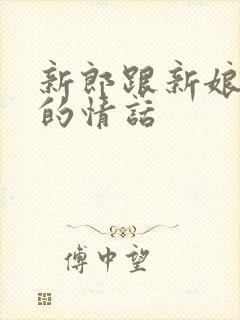 新郎跟新娘
的情話
傅中望